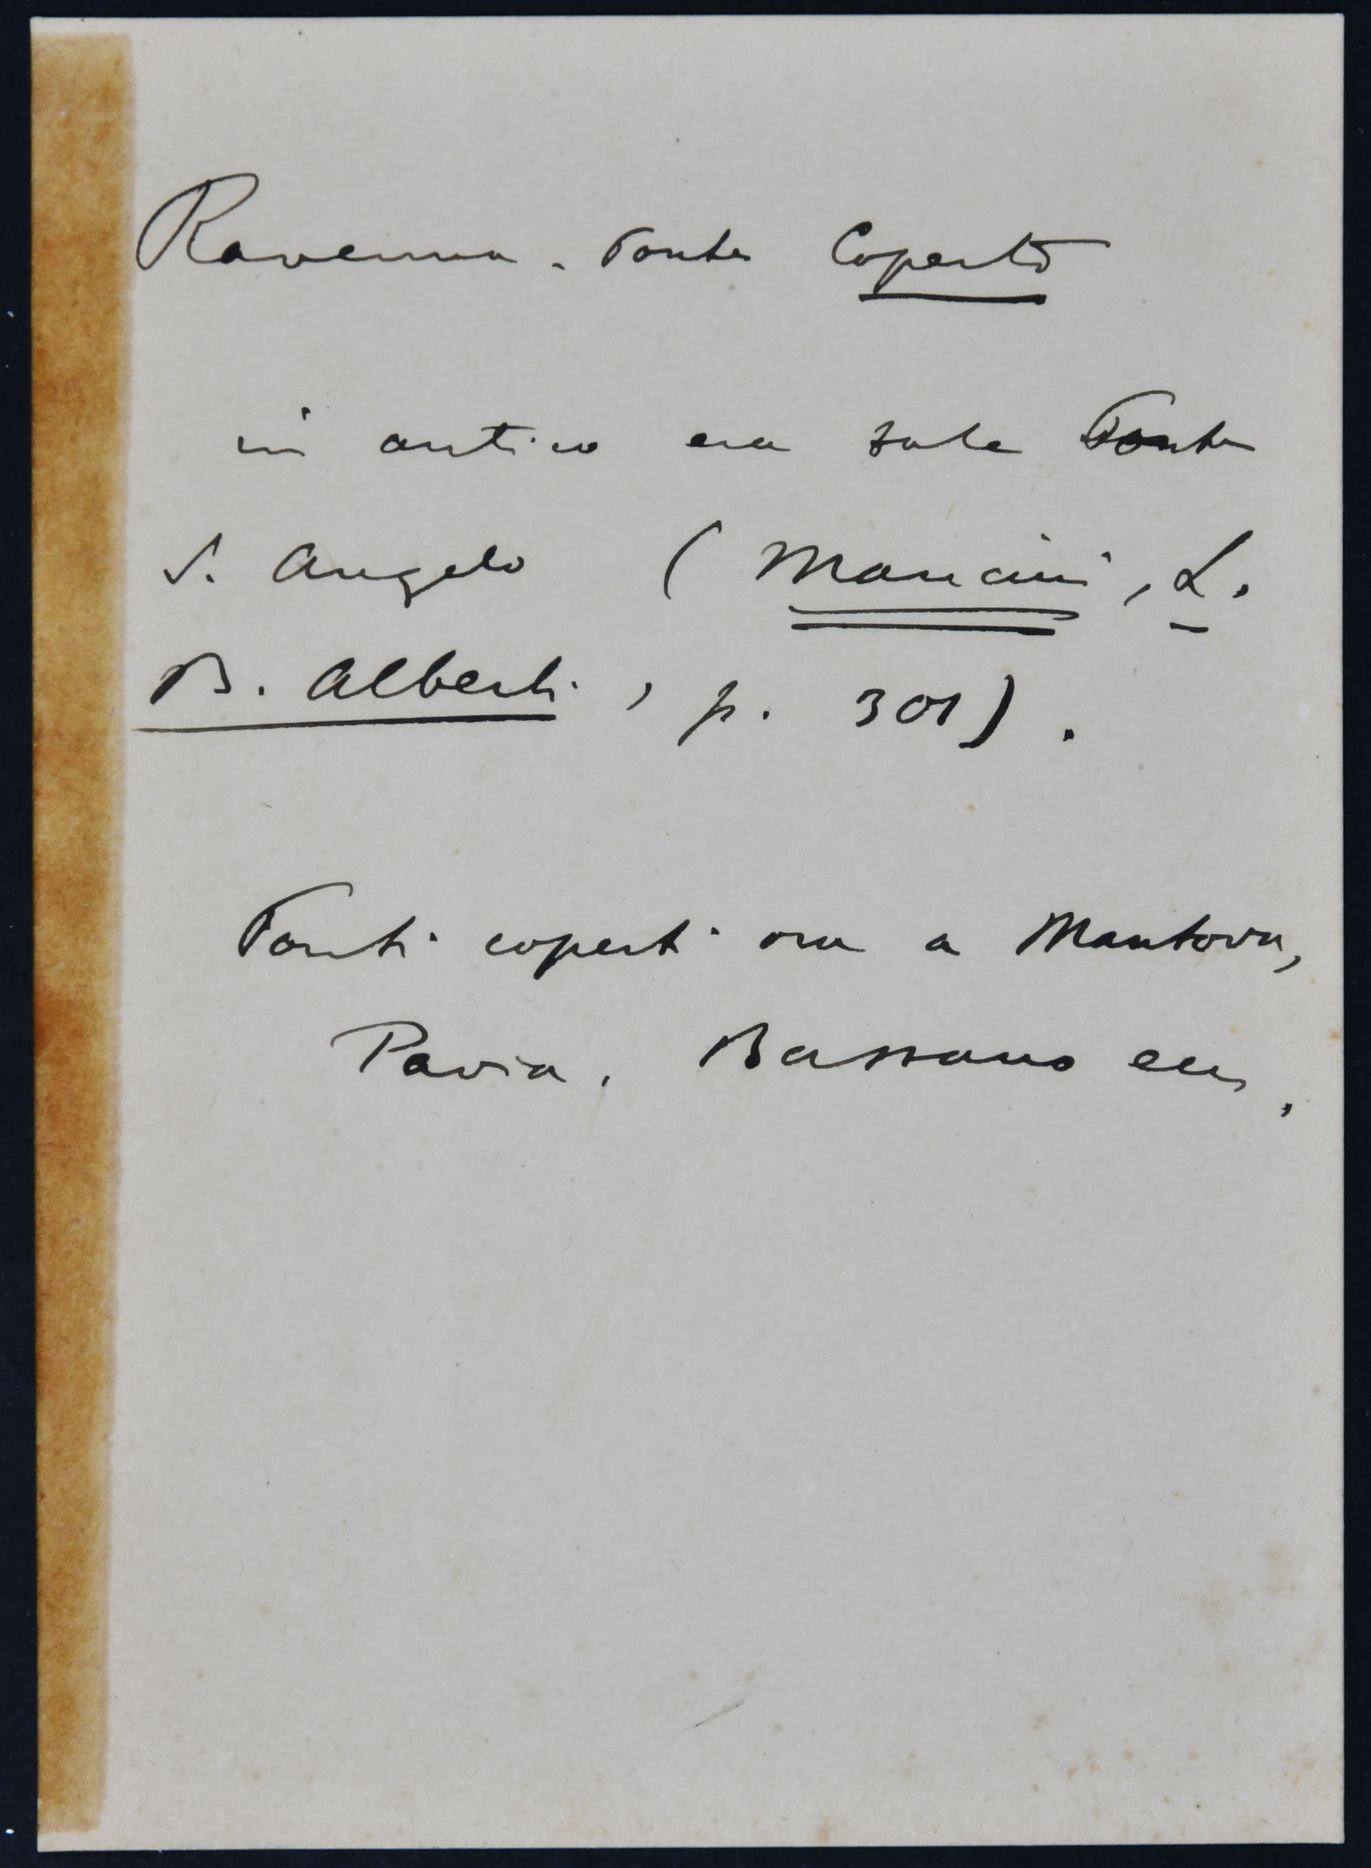 Ravenna. Ponte Coperto
in antico era tale Ponte
S. Angelo (Mancini, L.
B. Alberti, p. 301).
Ponti coperti ora a Mantova,
Pavia, Bassano ecc.